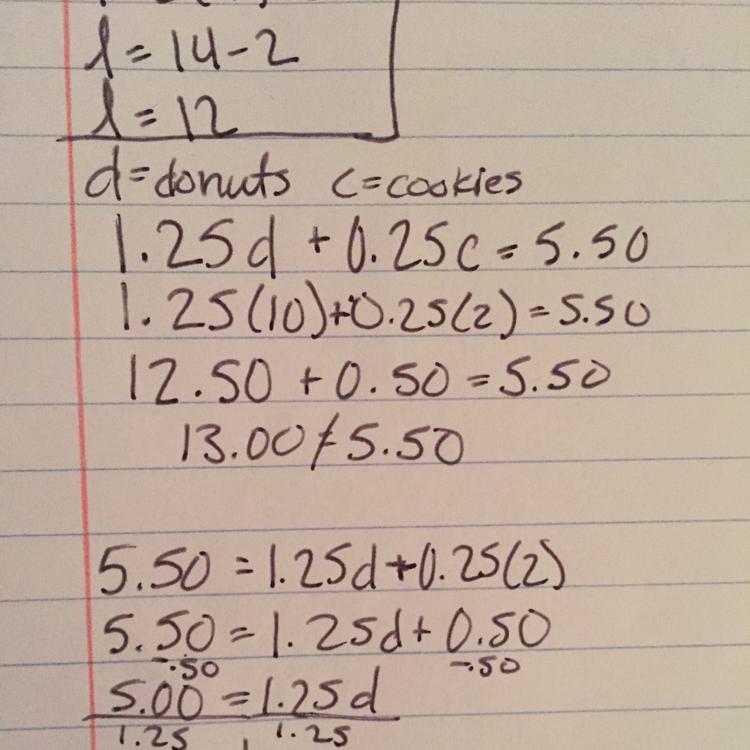 l = 14 - 2
l = 12
d = donuts c = cookies
1.25d + 0.25c = 5.50
1.25(10) + 0.25(2) = 5.50
12.50 + 0.50 = 5.50
13.00 ≠ 5.50
5.50 = 1.25d + 0.25(2)
5.50 = 1.25d + 0.50
-.50 -.50
5.00 = 1.25d
1.25 1.25